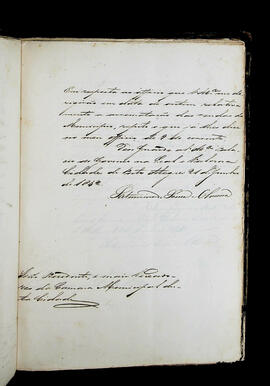 Em resposta ao officio que V. M.ces me di-
rigirão em data de ontem relativa
mente a arrematação das rendas do
Municipio, repito o que já lhes disse
no meu officio de 9 do corrente.
Deos Guarde a V. M.ces Pala-
cio do Governo na Leal e Valorosa
Cidade de Porto Alegre 21 de Junho
de 1842
Snr.s Presidente, e mais Vereado-
res da Camara Municipal des-
ta Cidade